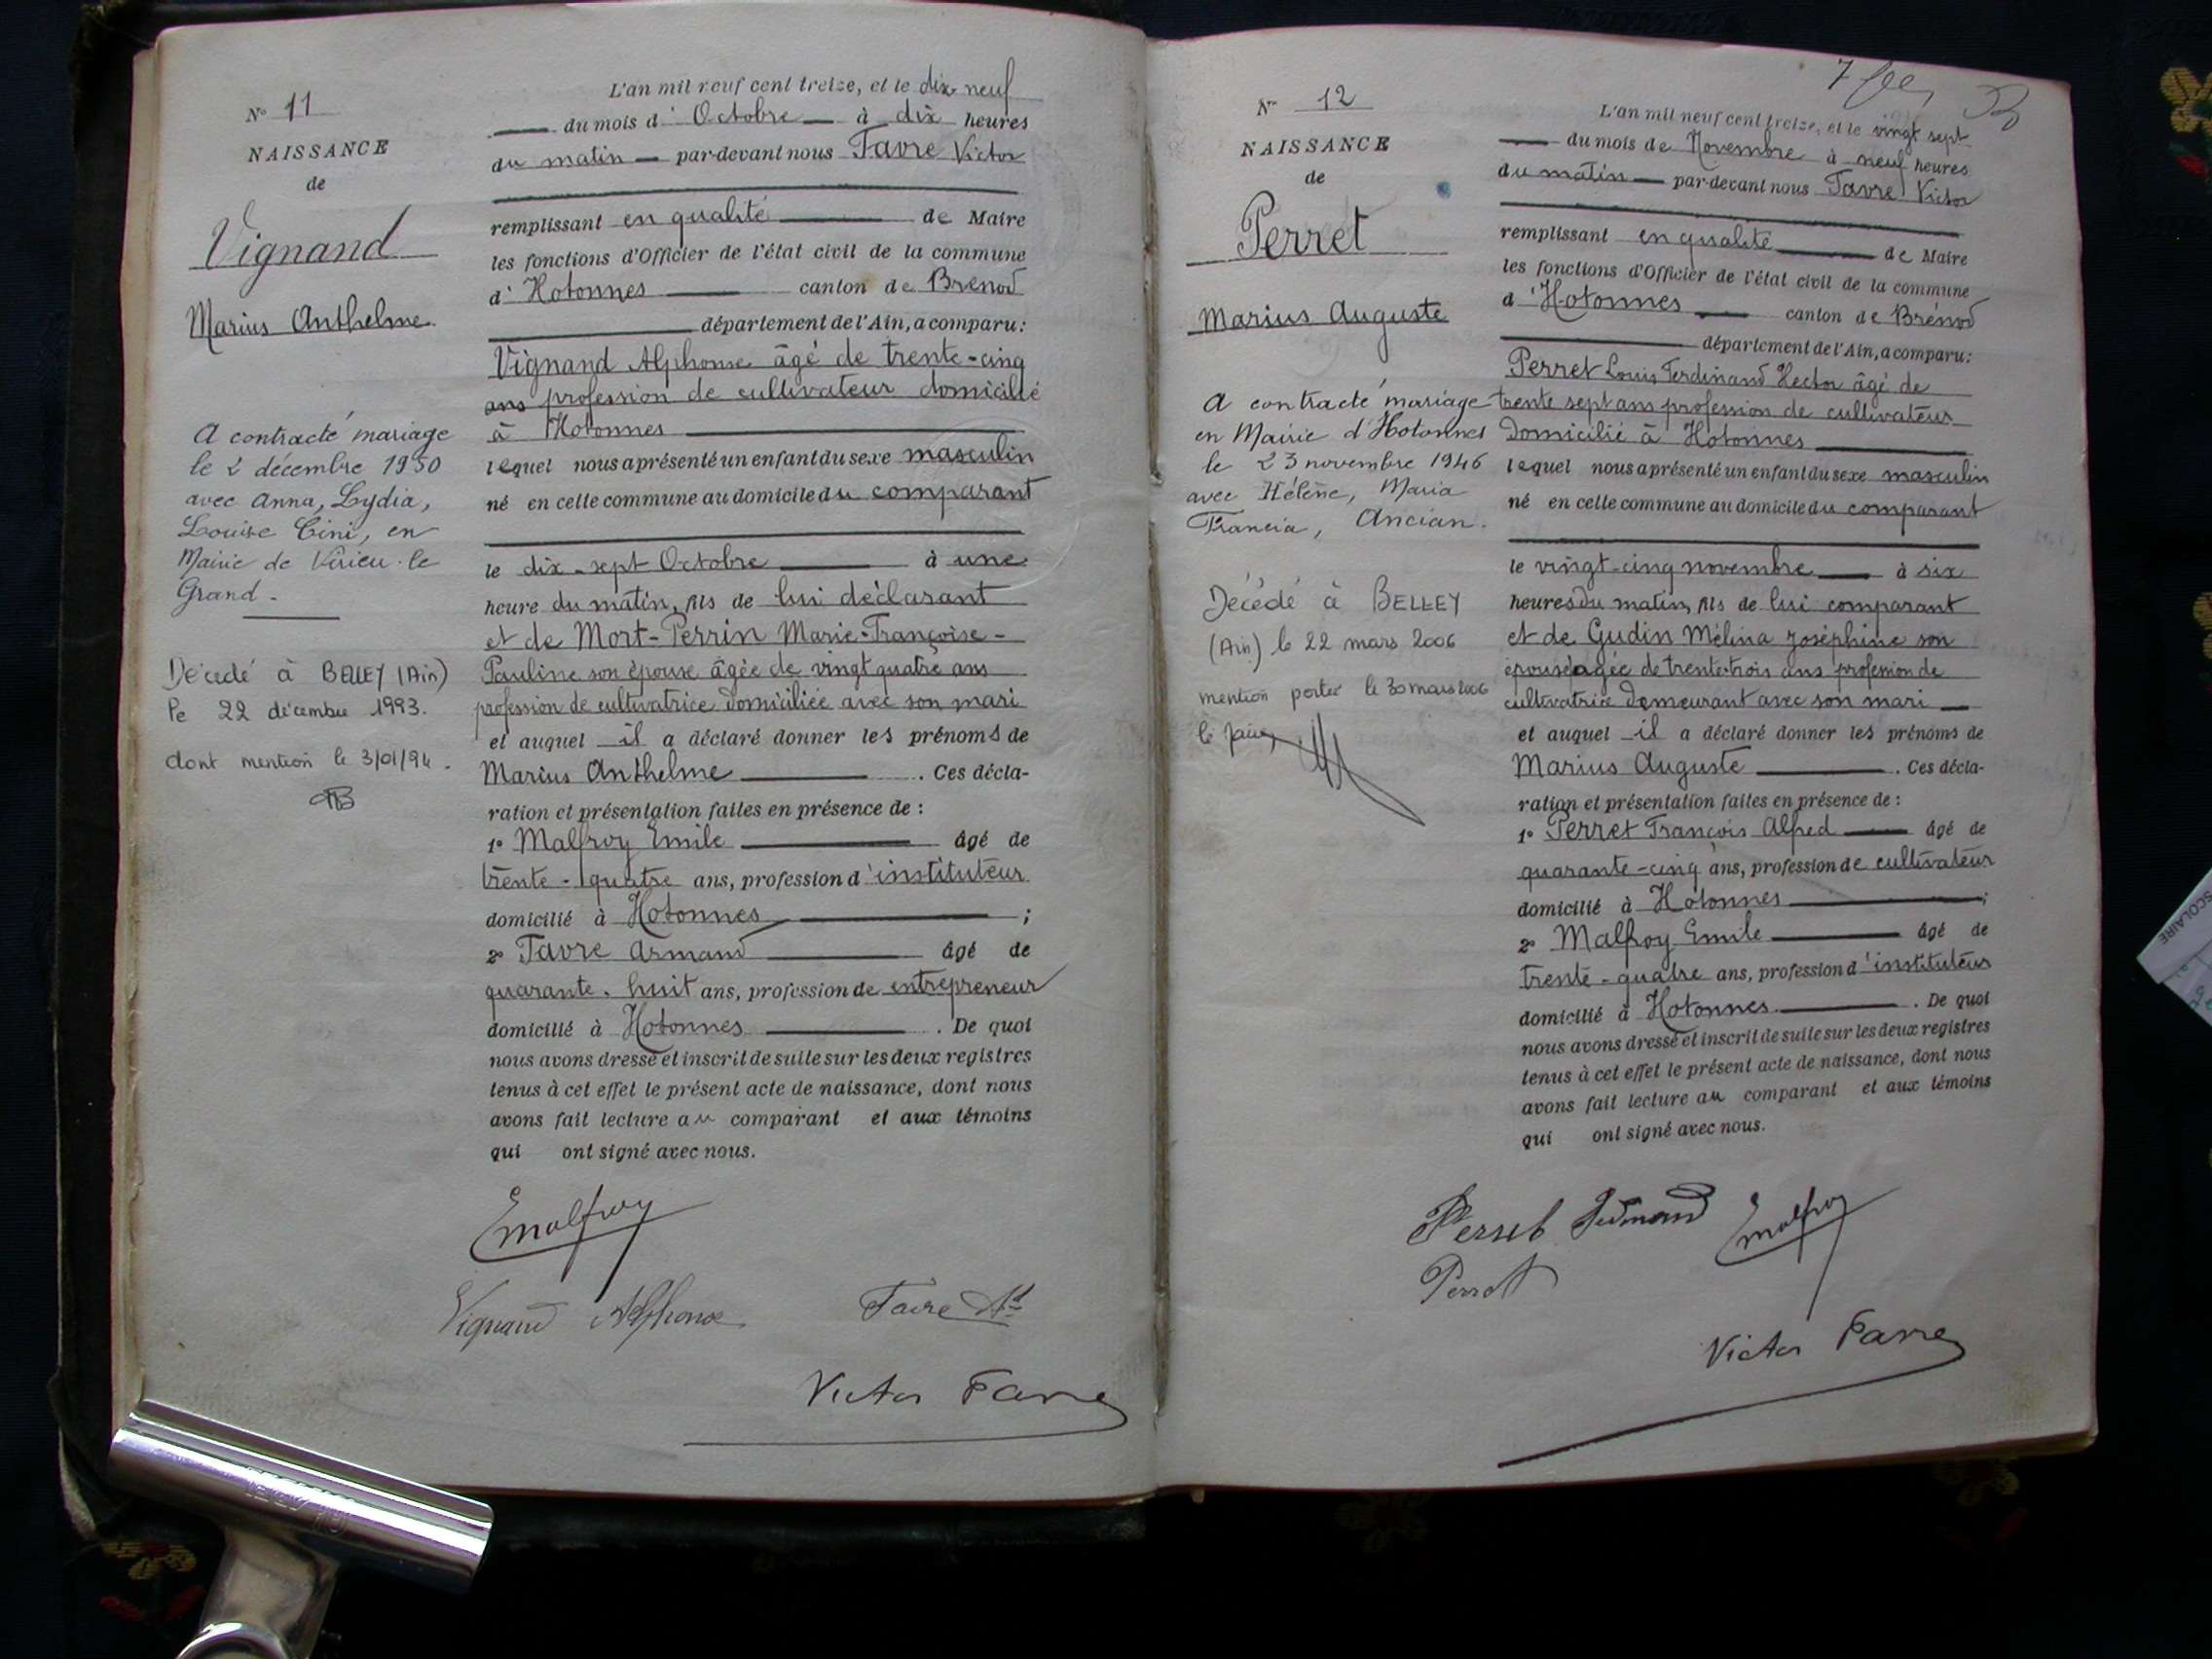 N° 11
NAISSANCE
de
Vignand
Marius Anthelme
A contracté mariage
le 2 décembre 1950
avec Anna, Lydia,
Louise Cini, en
Mairie de Virieu-le
Grand.
Décédé à BELLEY (Ain)
le 22 décembre 1993.
dont mention le 3/01/94.
L'an mil neuf cent treize, et le dix neuf
du mois d'Octobre à dix heures
du matin par-devant nous Favre Victor
remplissant en qualité de Maire
les fonctions d'Officier de l'état civil de la commune
d'Hotonnes canton de Brénod
département de l'Ain, a comparu:
Vignand Alphonse âgé de trente-cinq
ans profession de cultivateur domicilié
à Hotonnes
lequel nous a présenté un enfant du sexe masculin
né en cette commune au domicile du comparant
le dix-sept Octobre à une
heure du matin, fils de lui déclarant
et de Mort-Perrin Marie-Françoise-
Pauline son épouse âgée de vingt quatre ans
profession de cultivatrice domiciliée avec son mari
et auquel il a déclaré donner les prénoms de
Marius Anthelme. Ces décla-
ration et présentation faites en présence de :
1° Malfroy Emile âgé de
trente-quatre ans, profession d'instituteur
domicilié à Hotonnes ;
2° Favre Armand âgé de
quarante-huit ans, profession de entrepreneur
domicilié à Hotonnes. De quoi
nous avons dressé et inscrit de suite sur les deux registres
tenus à cet effet le présent acte de naissance, dont nous
avons fait lecture au comparant et aux témoins
qui ont signé avec nous.
Emalfroy
Vignand Alphonse Favre Ad
Victor Favre
7
N° 12
NAISSANCE
de
Perret
Marius Auguste
A contracté mariage
en Mairie d'Hotonnes
le 23 novembre 1946
avec Hélène, Maria
Francia, Ancian.
Décédé à BELLEY
(Ain) le 22 mars 2006
mention portée le 30 mars 2006
L'an mil neuf cent treize, et le vingt sept
du mois de Novembre à neuf heures
du matin par-devant nous Favre Victor
remplissant en qualité de Maire
les fonctions d'Officier de l'état civil de la commune
d'Hotonnes canton de Brénod
département de l'Ain, a comparu:
Perret Louis Ferdinand Hector âgé de
trente sept ans profession de cultivateur
domicilié à Hotonnes
lequel nous a présenté un enfant du sexe masculin
né en cette commune au domicile du comparant
le vingt-cinq novembre à six
heures du matin, fils de lui comparant
et de Gudin Mélina Joséphine son
épouse âgée de trente-trois ans profession de
cultivatrice demeurant avec son mari
et auquel il a déclaré donner les prénoms de
Marius Auguste. Ces décla-
ration et présentation faites en présence de :
1° Perret François Alfred âgé de
quarante-cinq ans, profession de cultivateur
domicilié à Hotonnes ;
2° Malfroy Emile âgé de
trente-quatre ans, profession d'instituteur
domicilié à Hotonnes. De quoi
nous avons dressé et inscrit de suite sur les deux registres
tenus à cet effet le présent acte de naissance, dont nous
avons fait lecture au comparant et aux témoins
qui ont signé avec nous.
Perret Emalfroy
Perret
Victor Favre
SCOLAIRE